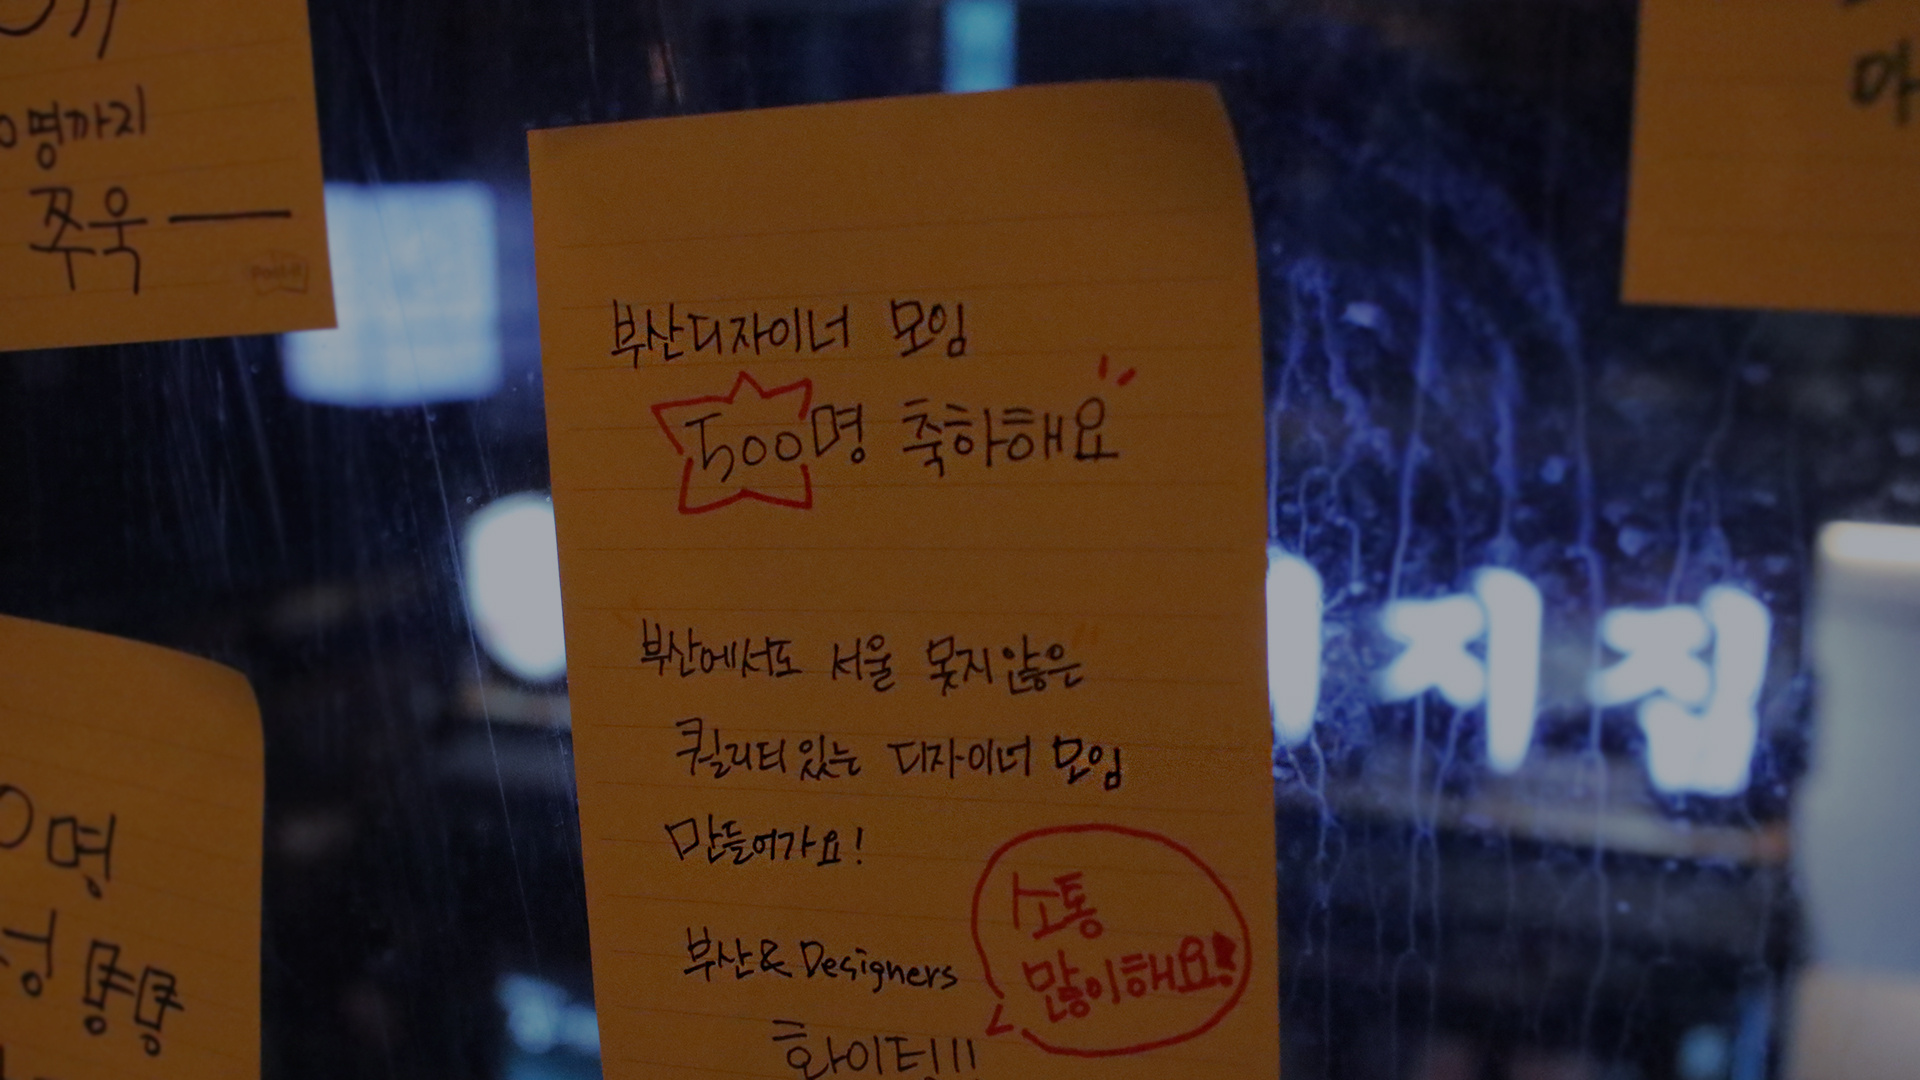 명까지
쭈욱 —
부산디자이너 모임
500명 축하해요
부산에서도 서울 못지않은
퀄리티있는 디자이너 모임
만들어가요!
부산& Designers
화이팅!!!
소통
많이해요!
명
지집